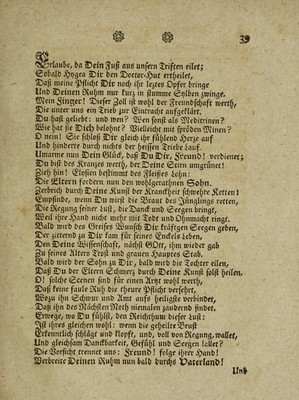 39
Erlaube, da Dein Fuß aus unsern Triften eilet;
Sobald Hygea Dir den Doctor-Hut ertheilet,
Daß meine Pflicht Dir noch ihr leztes Opfer bringe
Und Deinen Ruhm nur kurz in stumme Sylben zwinge;
Mein Finger! Dieser Zoll ist wohl der Freundschaft werth,
Die unter uns ein Trieb zur Eintracht aufgeklärt.
Du hast geliebt: und wen? Wen sonst als Meditrinen?
Wie hat sie Dich belohnt? Vielleicht mit spröden Minen?
O nein! Sie schloß Dir gleich ihr fühlend Herze auf
Und hinderte durch nichts der heissen Triebe Lauf.
Umarme nun Dein Glück, daß Du Dir, Freund! verdienet;
Du bist des Kranzes werth, der Deine Stirn umgrünet!
Zieh hin! Elysien bestimmt des Fleisses Lohn:
Die Eltern fordern nun den wohlgerathnen Sohn.
Zerbrich durch Deine Kunst der Krankheit schwehre Ketten!
Empfinde, wenn Du wirst die Braut des Jünglings retten,
Die Regung seiner Lust, die Danck und Seegen bringt,
Weil ihre Hand nicht mehr mit Todt und Ohnmacht ringt.
Bald wird des Greises Wunsch Dir kräftgen Seegen geben,
Der zitternd zu Dir kam für seines Enkels Leben,
Den Deine Wissenschaft, nächst GOtt, ihm wieder gab
Zu seines Alters Trost und grauen Hauptes Stab.
Bald wird der Sohn zu Dir, bald wird die Tochter eilen,
Daß Du der Eltern Schmerz durch Deine Kunst solst heilen.
O! solche Scenen sind für einen Arzt wohl werth,
Daß keine faule Ruh die theure Pflicht versehrt,
Wozu ihn Schwur und Amt aufs heiligste verbindet,
Daß ihn des Nächsten Noth niemalen zaudernd findet.
Erwege, wo Du fühlst, den Reichthum dieser Lust:
Ist ihres gleichen wohl: wenn die geheilte Brust
Erkenntlich schlägt und klopft, und, voll von Regung, wallet,
Und gleichsam Danckbarkeit, Gefühl und Seegen lallet?
Die Vorsicht trennet uns: Freund! folge ihrer Hand!
Verbreite Deinen Ruhm nun bald durchs Vaterland!
Und